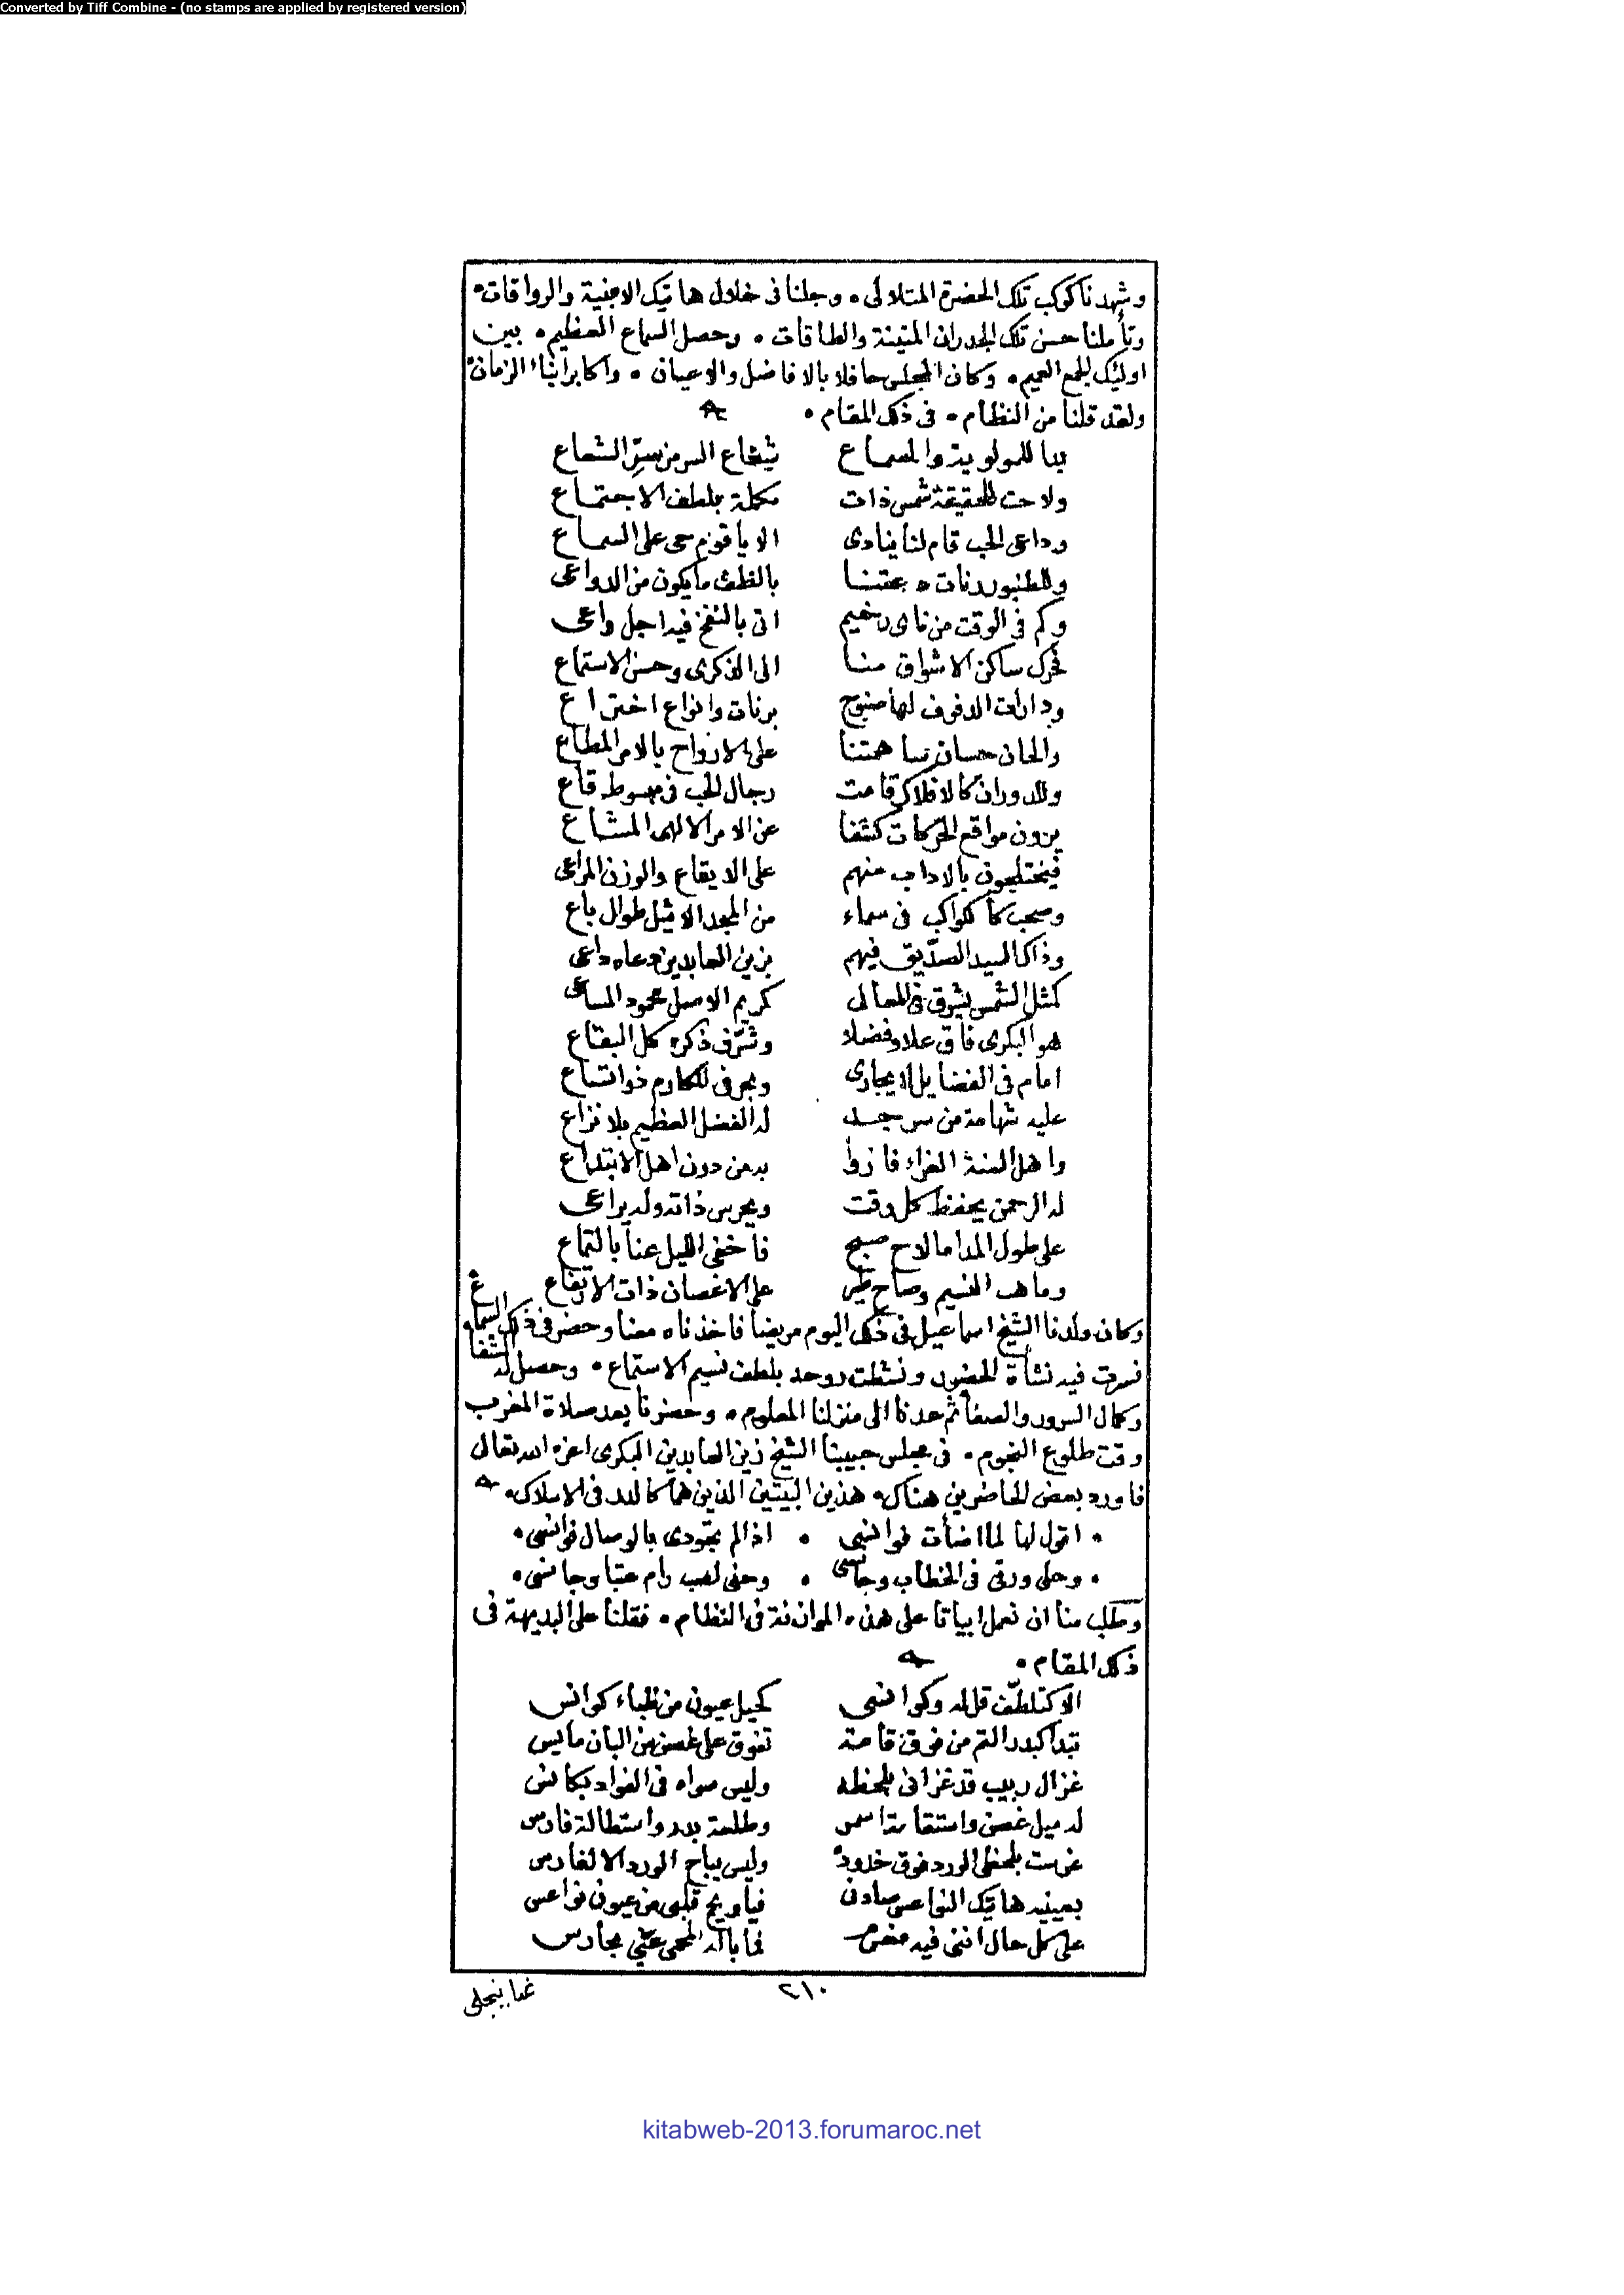 Converted by Tiff Combine - (no stamps are applied by registered version)
وشهدنا كوكب تلك الحضرة المتلالى • وجلنا فى خلال هاتيك الابنية والرواقات •
وتأملنا حسن تلك الجدران المتينة والطاقات • وحصل السماع العظيم • بين
اوليك الجمع العميم • وكان المجلس حافلا بالافاضل والاعيان • واكابر ابناء الزمان •
ولقد قلنا من النظام • فى ذلك المقام •
بدا للمولوية والسماع شعاع السر من الشعاع
ولاحت للحقيقة شمس ذات مكملة بلطف الاجتماع
وداعى الحب قام لنا ينادى الا ياقوم حى على السماع
وللطنبور رنات دعتنا بالطف ما يكون من الدواعى
وكم فى الوقت من ناى رخيم اتى بالنفخ فيه اجل داعى
فحرك ساكن الاشواق منا الى الذكرى وحسن الاستماع
ودارات الدفوف لها ضجيج برنات وانواع اختراع
والحان حسان على الارواح بالامر المطاع
وللدوران كالافلاك قامت رجال الحب فى مبسوط قاع
يرون مواقع الحركات كشفا عن الامر الالهى المشاع
بالاداب منهم على الايقاع والوزن المراعى
وصحب كالكواكب فى سماء من المجد الاثيل طوال باع
وذاك السيد الصديق فيهم بزين العابدين دعاه داعى
كمثل الشمس يشرق فى المعالى كريم الاصل محمود المساعى
هو البكرى فاق علا وفضلا وشرف ذكره كل البقاع
امام فى الفضايل لا يجارى وبحر فى المكارم ذو اتساع
عليه شهامة من سر جد له الفضل العظيم بلا نزاع
واهل السنة الغراء فازوا به من دون اهل الابتداع
له الرحمن يحفظ كل وقت ويحرس ذاته وله يراعى
على طول المدا ما لاح صبح فاخفى الليل عنا بالتماع
وما هب النسيم وصاح طير على الاغصان ذات الارتفاع
وكان ولدنا الشيخ اسماعيل فى ذلك اليوم مريضا فاخذناه معنا وحضر فى ذلك السماع
فسرت فيه نشأة الحضور ونشطت روحه بلطف نسيم الاستماع • وحصل له الشفا
وكمال السرور والصفا ثم عدنا الى منزلنا المعلوم • وحضرنا بعد صلاة المغرب
وقت طلوع النجوم • فى مجلس حبيبنا الشيخ زين العابدين البكرى اعزه الله تعالى
فاورد بعض الحاضرين هناك • هذين البيتين الذين هما كالدر فى الاسلاك •
• اقول لها لما اضأت فوانسى • اذا لم تجودى بالوصال فوانسى •
• وحلى ورقى فى الخطاب وجانسى • وحنى لصب رام عتبا وجا نسى •
وطلب منا ان نعمل ابياتا على هذه الموازنة فى النظام • فقلنا على البديهة فى
ذلك المقام •
الا كن لطف قل له وكوانسى كحيل عيون من ظباء كوانس
تبدا كبدر التم من فوق قامة تفوق على غصن من البان مايس
غزال ربيب قد غزانى بلحظه وليس سواه فى الفواد بكانس
له ميل غصن واستقامة اسمر وطلعة بدر واستطالة فارس
غرست بلحظى الورد فوق خدوده وليس يباح الورد الا لغارس
بعينيه هاتيك النواعس صادنى فياويح قلبى من عيون نواعس
على كل حال اننى فيه مغرم فما باله المحمى عنى بحارس
غدا ينجلى
٢١٠
kitabweb-2013.forumaroc.net